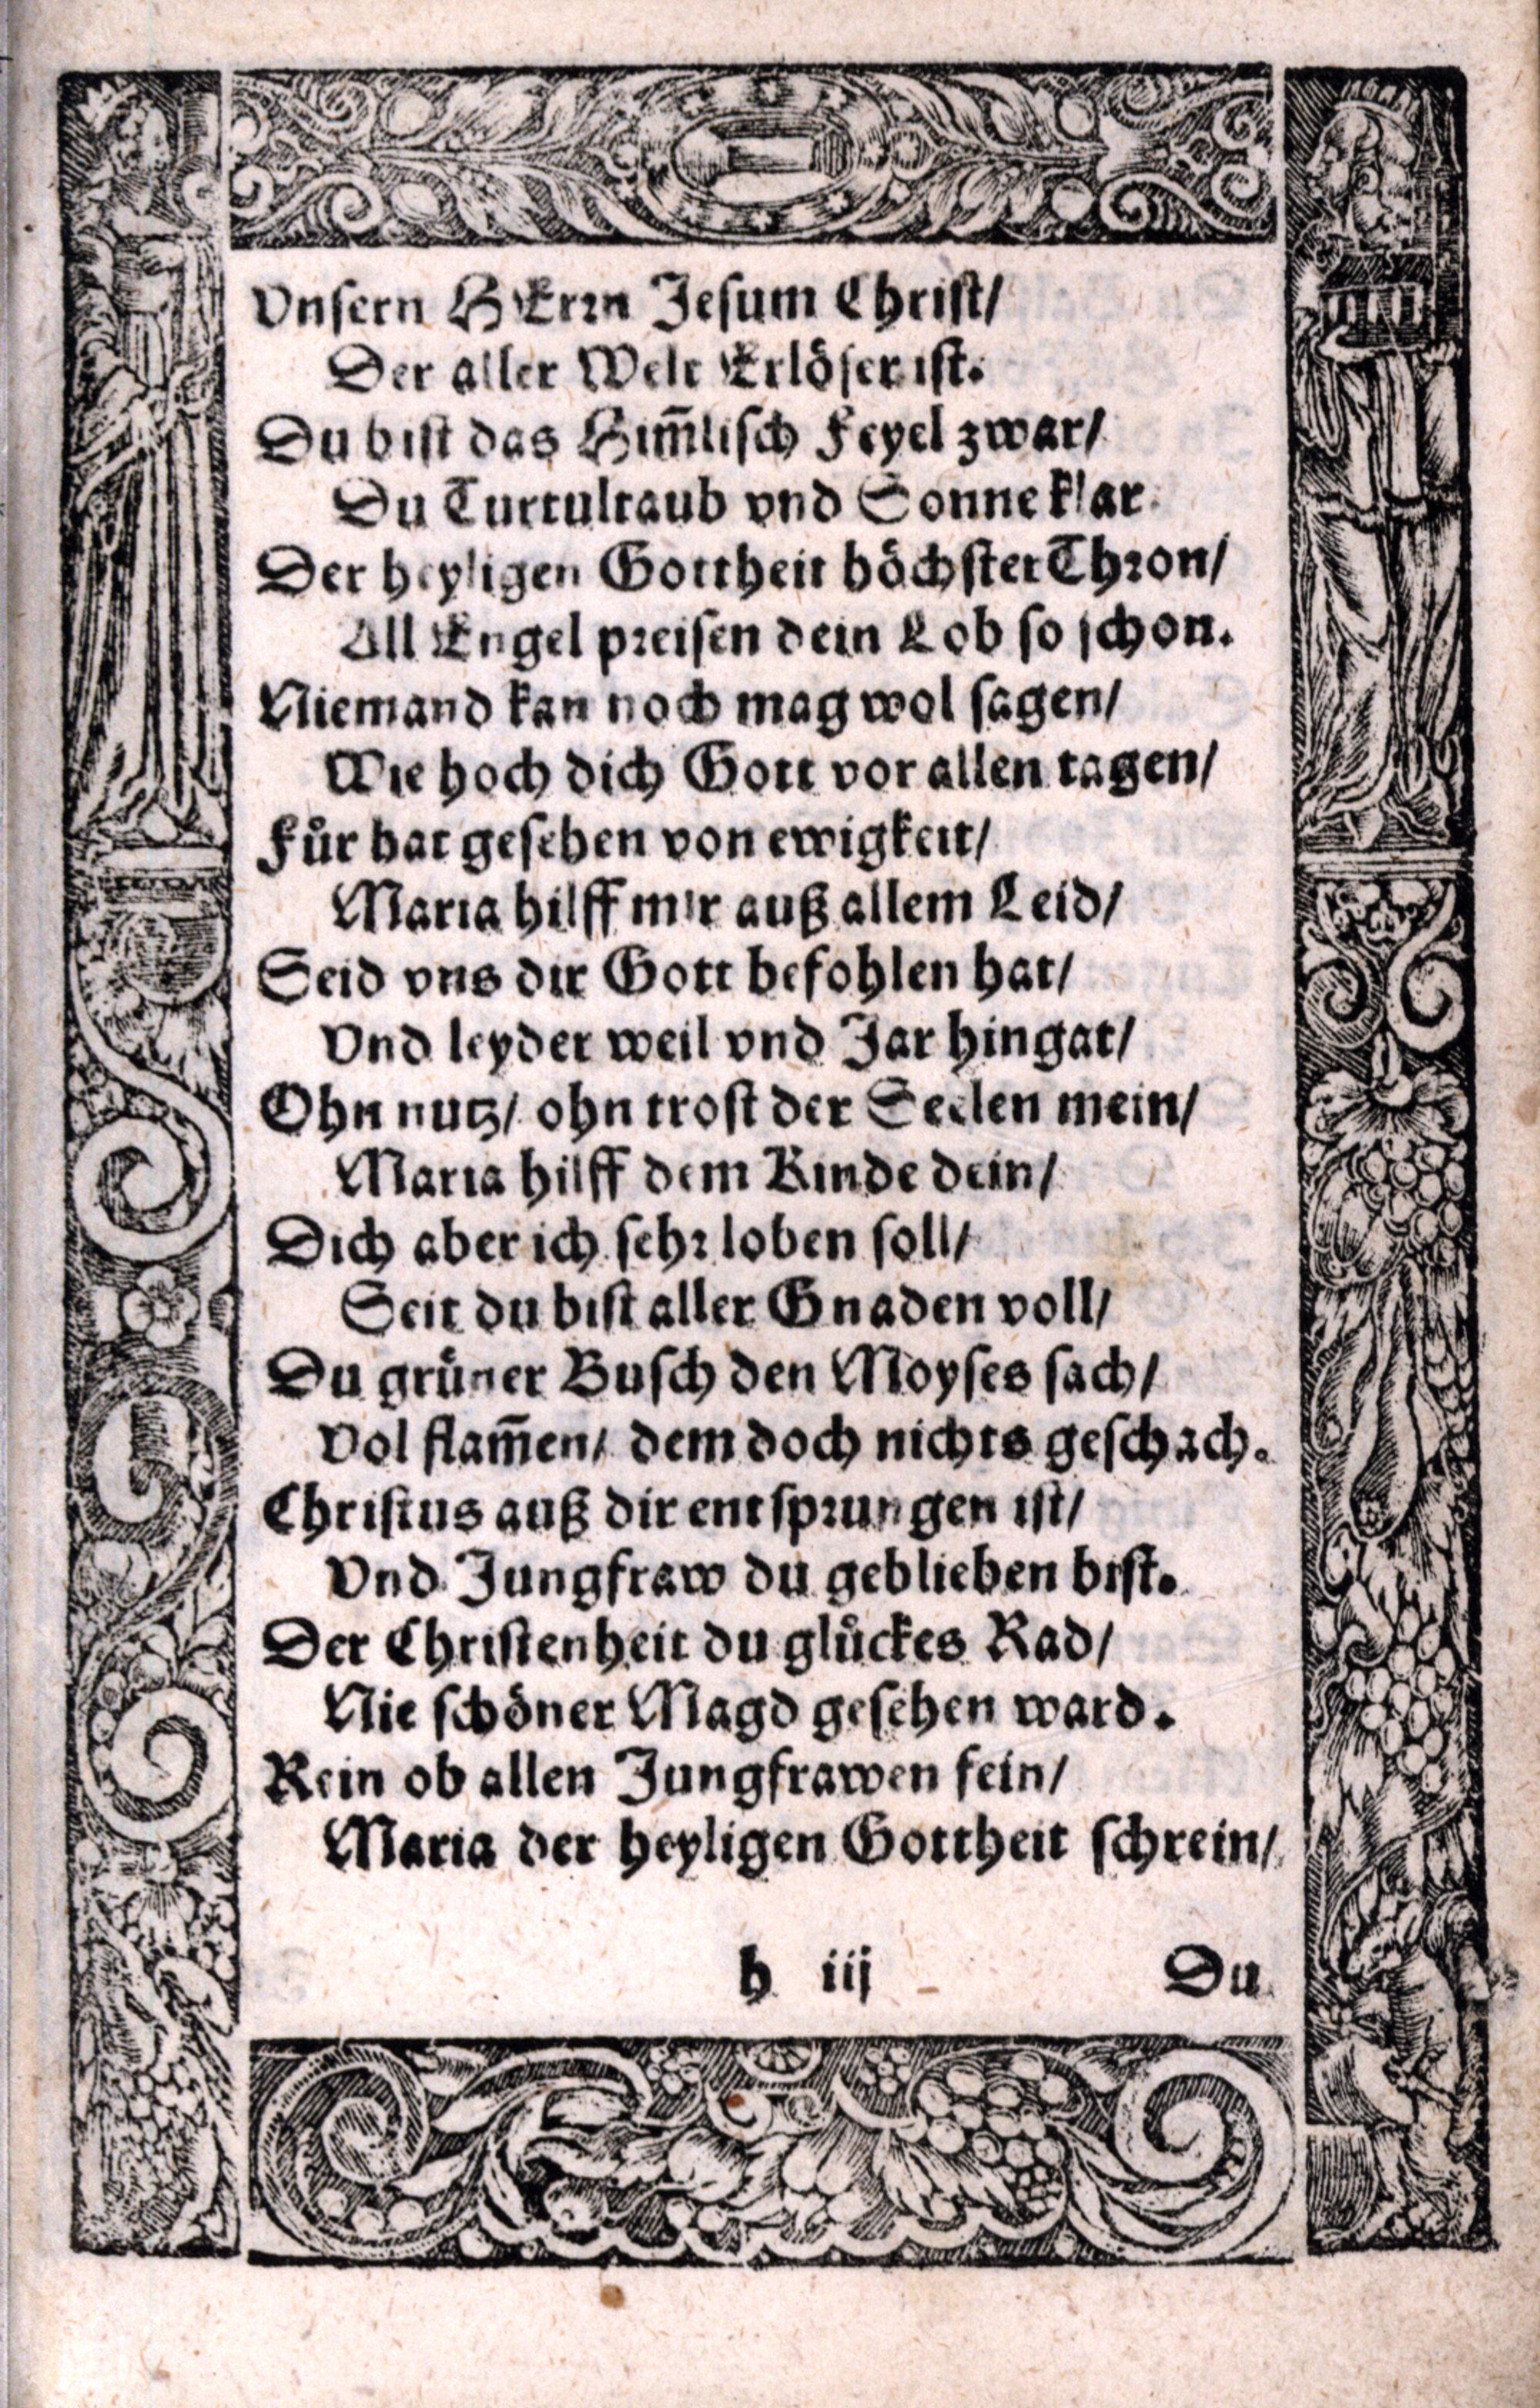 Vnsern HErrn Jesum Christ/
Der aller Welt Erlöser ist.
Du bist das Him̄lisch Feyel zwar/
Du Turtultaub vnd Sonne klar.
Der heyligen Gottheit höchster Thron/
All Engel preisen dein Lob so schon.
Niemand kan noch mag wol sagen/
Wie hoch dich Gott vor allen tagen/
Fuͤr hat gesehen von ewigkeit/
Maria hilff mir auß allem Leid/
Seid vns dir Gott befohlen hat/
Vnd leyder weil vnd Jar hingat/
Ohn nutz/ ohn trost der Seelen mein/
Maria hilff dem Kinde dein/
Dich aber ich sehr loben soll/
Seit du bist aller Gnaden voll/
Du gruͤner Busch den Moyses sach/
Vol flam̄en/ dem doch nichts geschach.
Christus auß dir entsprungen ist/
Vnd Jungfraw du geblieben bist.
Der Christenheit du gluͤckes Rad/
Nie schöner Magd gesehen ward.
Rein ob allen Jungfrawen fein/
Maria der heyligen Gottheit schrein/
h iij Du